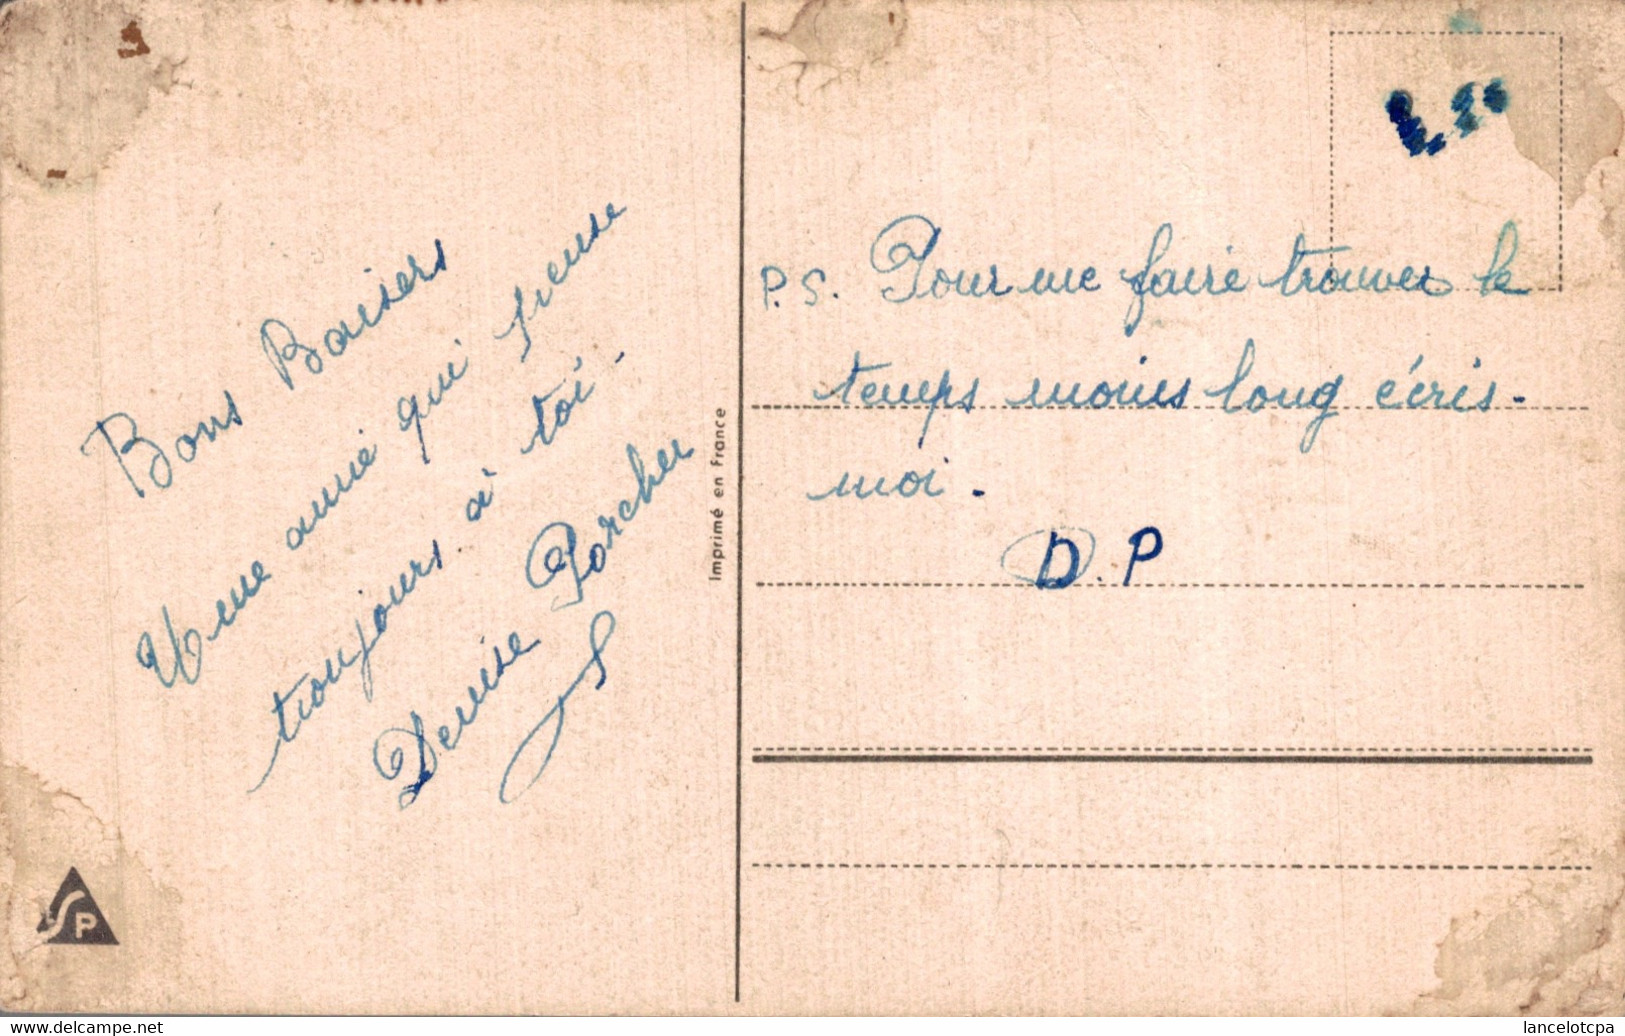 Bons Baisers
Une amie qui pense
toujours à toi -
Denise Porcher
Imprimé en France
P.S. Pour me faire trouver le
temps moins long écris-
moi.
D.P
SP
www.delcampe.net
lancelotcpa